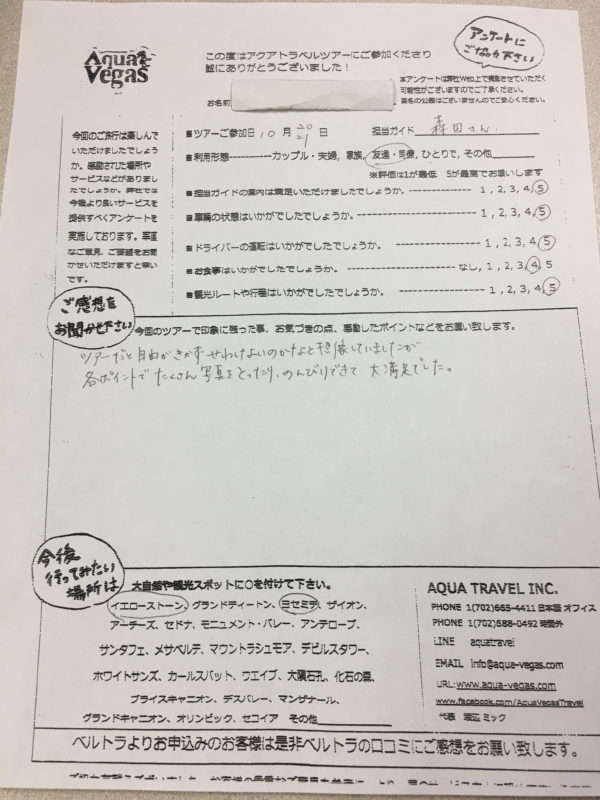 Aqua
Vegas
この度はアクアトラベルツアーにご参加くださり
誠にありがとうございました!
アンケートに
ご協力下さい
本アンケートは弊社Web上で掲載させていただく
可能性がございますのでご了承ください。
匿名の公開はございませんのでご安心ください。
お名前
今回のご旅行は楽しんで
いただけましたでしょう
か。感動された場所や
サービスなどがありまし
たでしょうか。弊社では
今後より良いサービスを
提供すべくアンケートを
実施しております。率直
なご意見、ご要望をお聞
かせいただけますと幸い
です。
■ツアーご参加日 10 月 20 21 日 担当ガイド 森田さん
■利用形態----------カップル・夫婦, 家族, 友達・同僚, ひとりで, その他
※評価は1が最低 5が最高でお願いします
■担当ガイドの案内は満足いただけましたでしょうか。---------------- 1, 2, 3, 4, 5
■車輌の状態はいかがでしたでしょうか。------------------------ 1, 2, 3, 4, 5
■ドライバーの運転はいかがでしたでしょうか。------------------ 1, 2, 3, 4, 5
■お食事はいかがでしたでしょうか。---------------------- なし, 1, 2, 3, 4, 5
■観光ルートや行程はいかがでしたでしょうか。------------------ 1, 2, 3, 4, 5
ご感想を
お聞かせ下さい
今回のツアーで印象に残った事、お気づきの点、感動したポイントなどをお願い致します。
ツアーだと自由がきかずせわしけよいのかなと想像していましたが
各ポイントでたくさん写真をとったり、のんびりできて 大満足でした。
今後
行ってみたい
場所は
大自然や観光スポットに○を付けて下さい。
イエローストーン、グランドティートン、ヨセミテ、ザイオン、
アーチーズ、セドナ、モニュメント・バレー、アンテロープ、
サンタフェ、メサベルテ、マウントラシュモア、デビルスタワー、
ホワイトサンズ、カールスバット、ウエイブ、大隕石孔、化石の森、
ブライスキャニオン、デスバレー、マンザナール、
グランドキャニオン、オリンピック、セコイア その他
AQUA TRAVEL INC.
PHONE 1(702)665-4411 日本語 オフィス
PHONE 1(702)588-0492 時間外
LINE aquatravel
EMAIL info@aqua-vegas.com
URL:www.aqua-vegas.com
www.facebook.com/AquaVegasTravel
代表 渡辺 ミック
ベルトラよりお申込みのお客様は是非ベルトラの口コミにご感想をお願い致します。